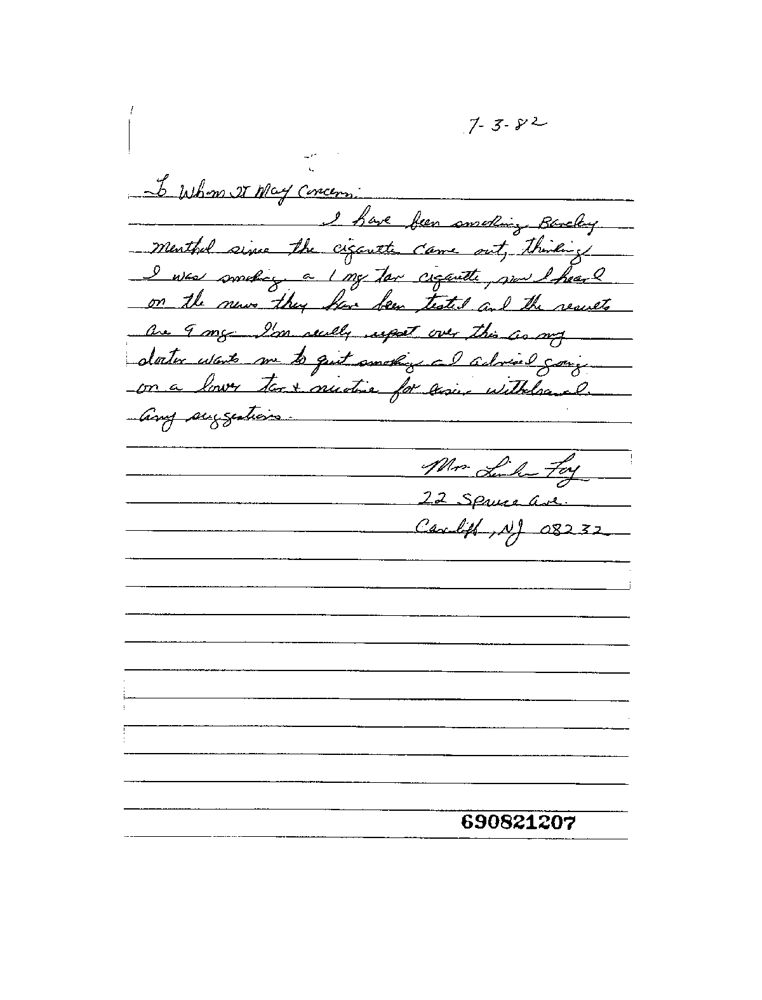 7-3-82
To Whom It May Concern:
I have been smoking Barclay
menthol since the cigarette came out, thinking
I was smoking a 1 mg tar cigarette, now I heard
on the news they have been tested and the results
are 9 mg. I'm really upset over this as my
doctor wants me to quit smoking and advised going
on a lower tar + nicotine for easier withdrawal.
Any suggestions.
Mrs Linda Foy
22 Spruce Ave.
Cardiff, NJ 08232
690821207